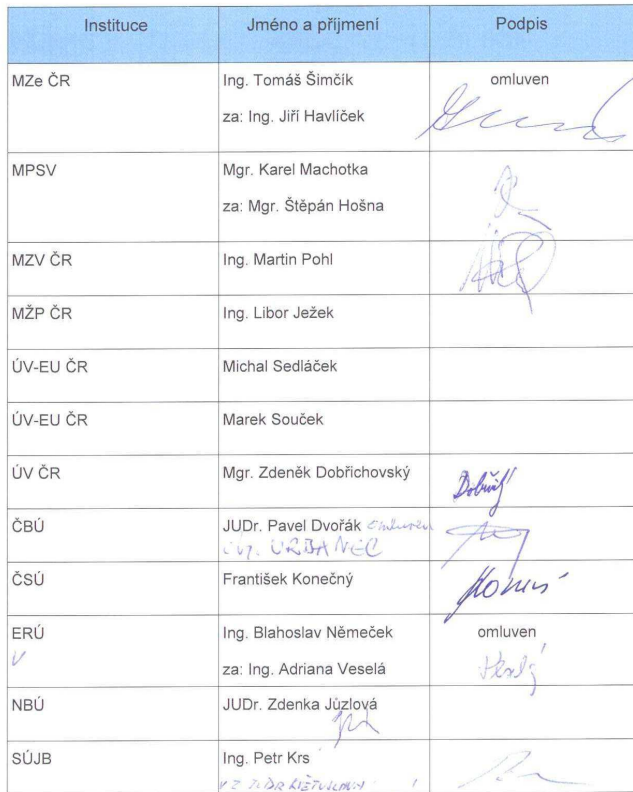 Instituce Jméno a příjmení Podpis
MZe ČR Ing. Tomáš Šimčík omluven
za: Ing. Jiří Havlíček
MPSV Mgr. Karel Machotka
za: Mgr. Štěpán Hošna
MZV ČR Ing. Martin Pohl
MŽP ČR Ing. Libor Ježek
ÚV-EU ČR Michal Sedláček
ÚV-EU ČR Marek Souček
ÚV ČR Mgr. Zdeněk Dobřichovský
ČBÚ JUDr. Pavel Dvořák omluven
Ing. URBANEC
ČSÚ František Konečný
ERÚ Ing. Blahoslav Němeček omluven
za: Ing. Adriana Veselá
NBÚ JUDr. Zdenka Jůzlová
SÚJB Ing. Petr Krs